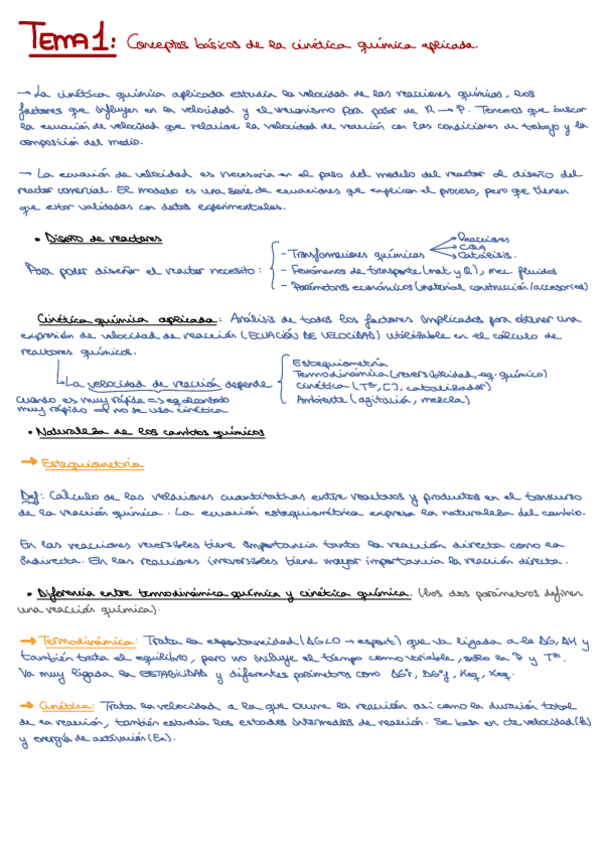 TEMA 1: Conceptos básicos de la cinética química aplicada.
→ La cinética química aplicada estudia la velocidad de las reacciones químicas, los
factores que influyen en la velocidad y el mecanismo para pasar de R → P. Tenemos que buscar
la ecuación de velocidad que relacione la velocidad de reacción con las condiciones de trabajo y la
composición del medio.
→ La ecuación de velocidad es necesaria en el paso del modelo del reactor al diseño del
reactor comercial. El modelo es una serie de ecuaciones que explican el proceso, pero que tienen
que estar validadas con datos experimentales.
• Diseño de reactores
Para poder diseñar el reactor necesito:
- Transformaciones químicas
Reacciones
Catálisis.
- Fenómenos de transporte (mat y Q), mec. fluidos
- Parámetros económicos (material construcción/accesorios)
Cinética química aplicada: Análisis de todos los factores implicados para obtener una
expresión de velocidad de reacción (ECUACIÓN DE VELOCIDAD) utilizable en el cálculo de
reactores químicos.
La velocidad de reacción depende
Estequiometría
Termodinámica (reversibilidad, eq. químico)
Cinética (Tª, [ ], catalizador)
Ambiente (agitación, mezcla)
cuando es muy rápida => eq. alcanzado
muy rápido => no se usa cinética
• Naturaleza de los cambios químicos
→ Estequiometría
Def: Cálculo de las relaciones cuantitativas entre reactivos y productos en el transcurso
de la reacción química. La ecuación estequiométrica expresa la naturaleza del cambio.
En las reacciones reversibles tiene importancia tanto la reacción directa como la
indirecta. En las reacciones irreversibles tiene mayor importancia la reacción directa.
• Diferencia entre termodinámica química y cinética química. (los dos parámetros definen
una reacción química).
→ Termodinámica: Trata la espontaneidad (ΔG<0 → espont) que va ligada a la ΔG, ΔH y
también trata el equilibrio, pero no incluye el tiempo como variable, solo la P y Tª.
Va muy ligada la ESTABILIDAD y diferentes parámetros como ΔG°r, ΔG°f, Keq, Xeq.
→ Cinética: Trata la velocidad a la que ocurre la reacción así como la duración total
de la reacción, también estudia los estados intermedios de reacción. Se basa en cte velocidad (k)
y energía de activación (Ea).